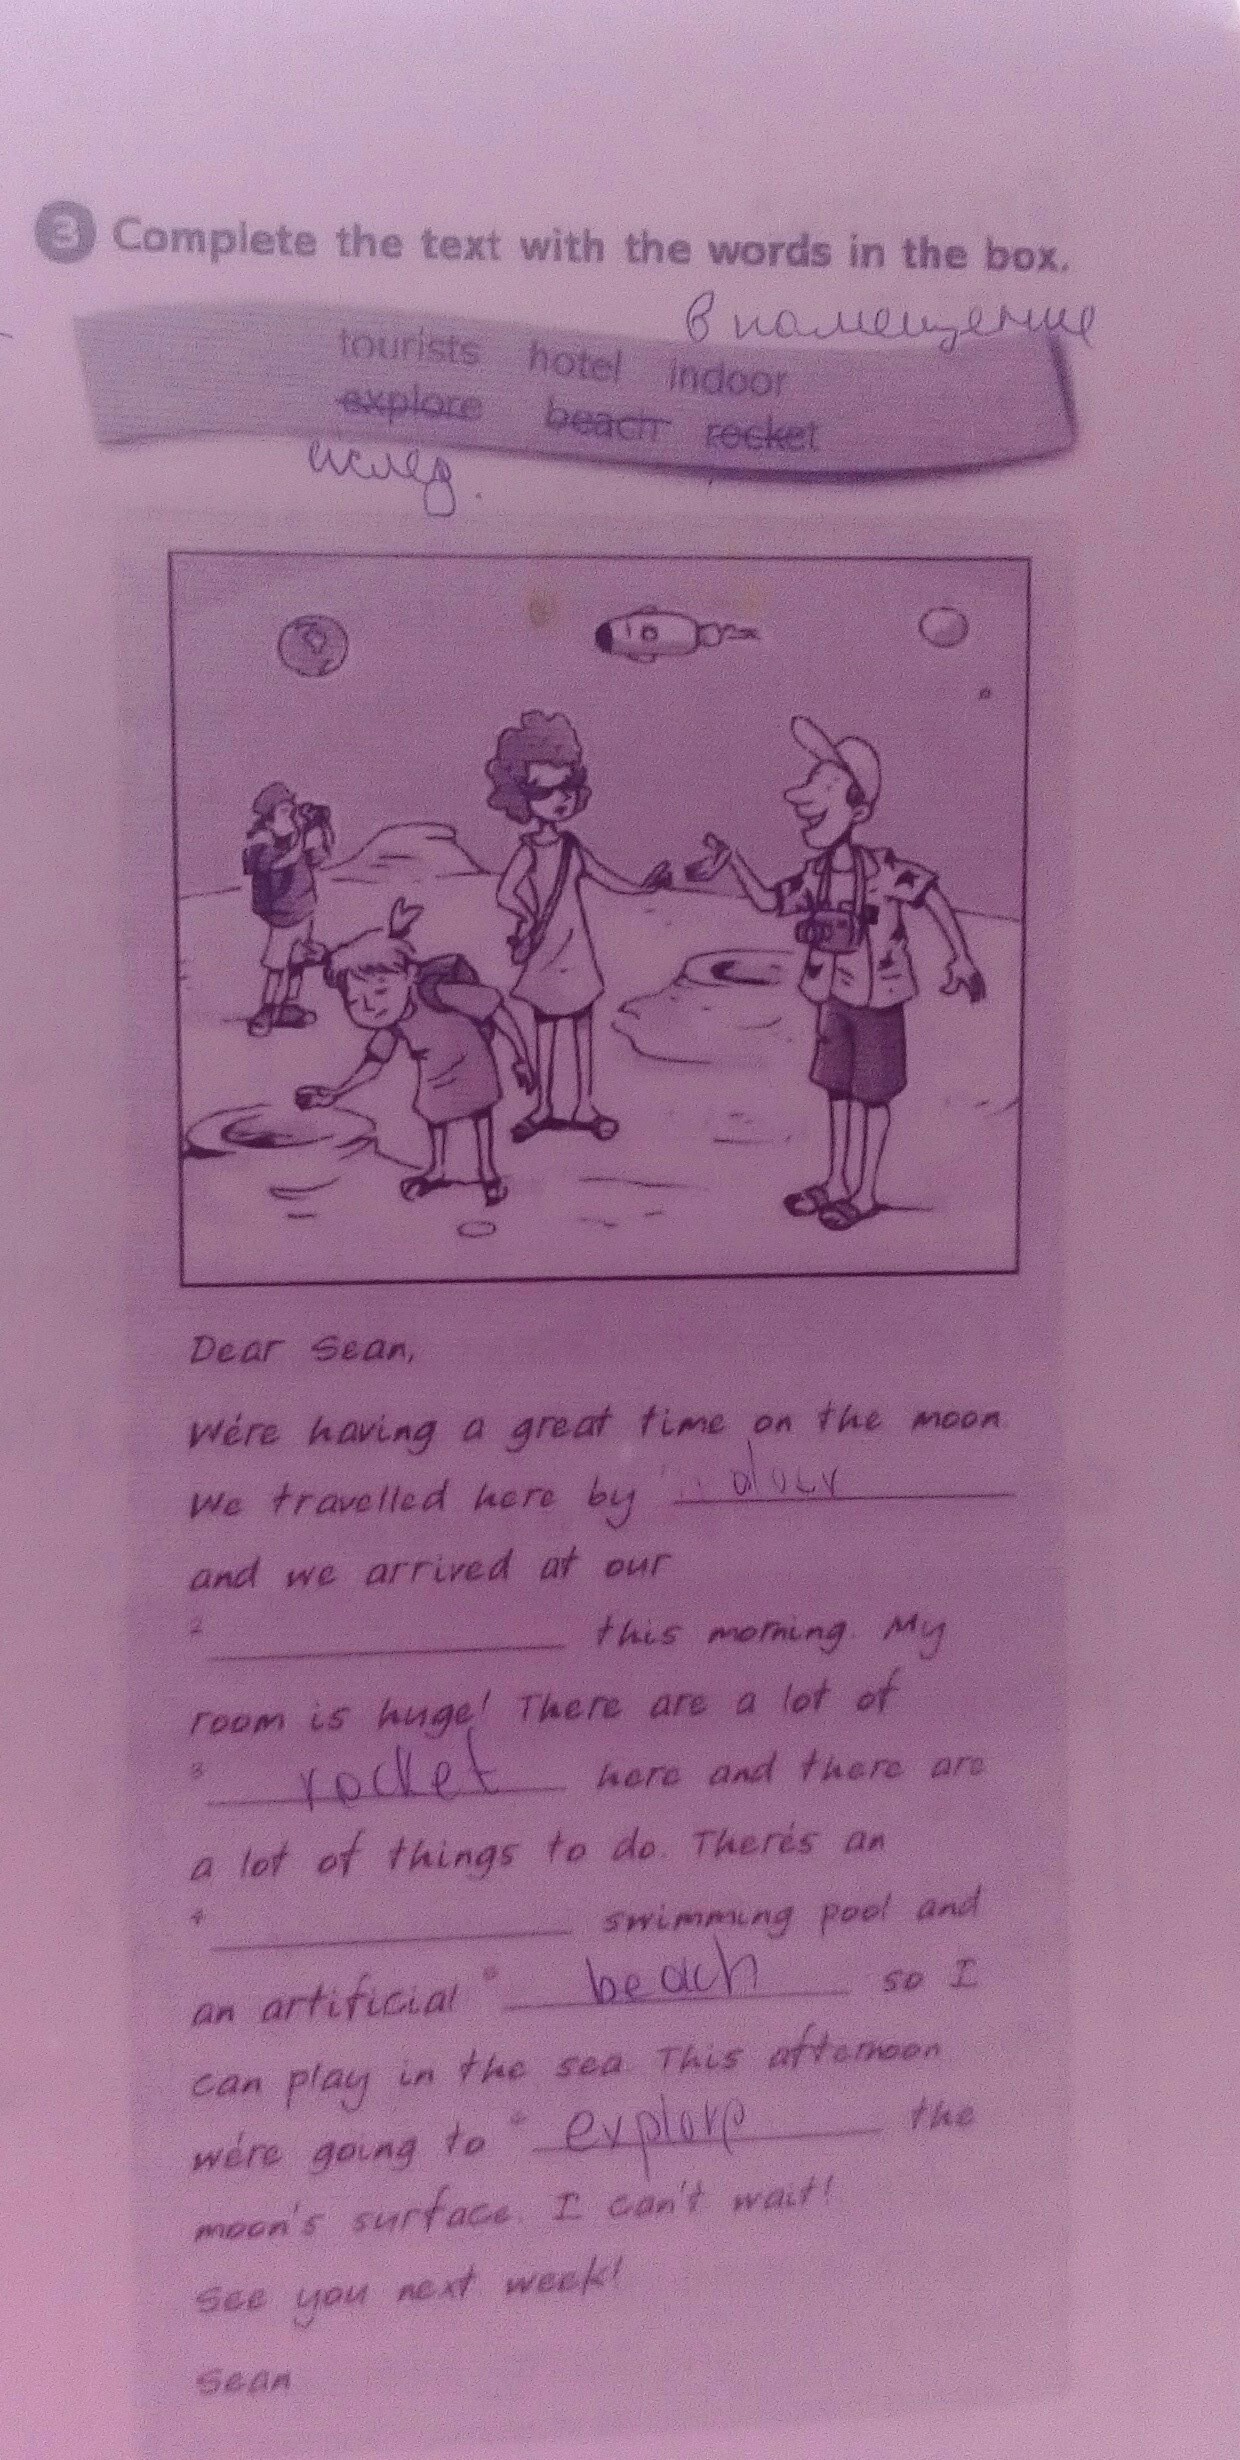 3 Complete the text with the words in the box.
в помещение
tourists hotel indoor
explore beach rocket
исслед.
Dear Sean,
We're having a great time on the moon
We travelled here by
and we arrived at our
2 this morning. My
room is huge! There are a lot of
3 rocket here and there are
a lot of things to do. There's an
4 swimming pool and
an artificial 5 beach so I
can play in the sea. This afternoon
we're going to 6 explore the
moon's surface. I can't wait!
See you next week!
Sean